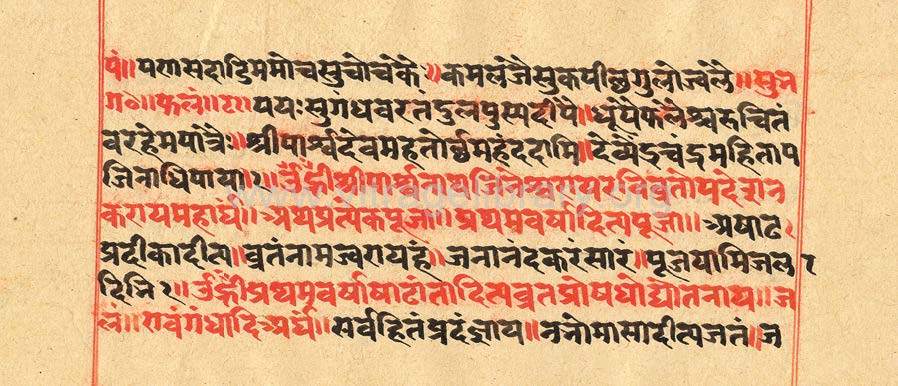 पं॥ पणसदाडिममोचसुचोचकैः॥ कमलजैसुकपीष्ठगुलोज्वलै॥ सुन
ग०॥ फलं॥ ८॥ पयःसुगधवरतंदुलपुस्पदीपै॥ धूपैफलैश्चरुचितं
वरहेमपात्रैः॥ श्रीपार्श्वदेवमहतोर्घमहंददामि॥ देवेंद्रचंद्रमहिताप
जिनाधिपाया॥ ९॥ ॐह्रीश्रीपार्श्वनाथजिनेश्वरायरविव्रतोपदेशन
करायमहार्घं॥ अथप्रत्येकपूजा॥ प्रथमवर्षादित्यपूजा॥ अषाढ
प्रदीकादीत्य॥ व्रतंनामज्वरायहं॥ जनानंदकरंसारं॥ पूजयामिजल
दिनि १॥ ॐह्रीप्रथमवर्षाषाढांतादित्यव्रतप्रोषधोद्योतनाय॥ ज
लं॥ एवंगंधादिअर्घं॥ सर्वहितंप्रदंज्ञाय॥ जनोमासादीत्यजतं॥ ज